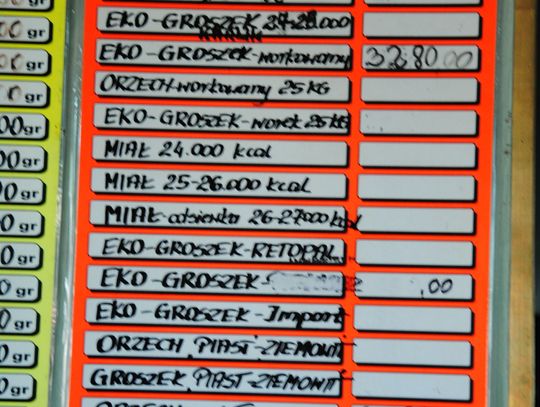 EKO-GROSZEK 27-28.000
EKO-GROSZEK-workowany 3280 00
ORZECH-workowany 25 KG
EKO-GROSZEK-worek 25 KG
MIAŁ 24.000 kcal
MIAŁ 25-26.000 kcal
MIAŁ-odsiewka 26-27000 kcal
EKO-GROSZEK-RETOPAL
EKO-GROSZEK- ,00
EKO-GROSZEK-Import
ORZECH, PIAST-ZIEMOWIT
GROSZEK, PIAST-ZIEMOWIT
gr
gr
gr
00 gr
00 gr
0 gr
0 gr
0 gr
0 gr
0 gr
0 gr